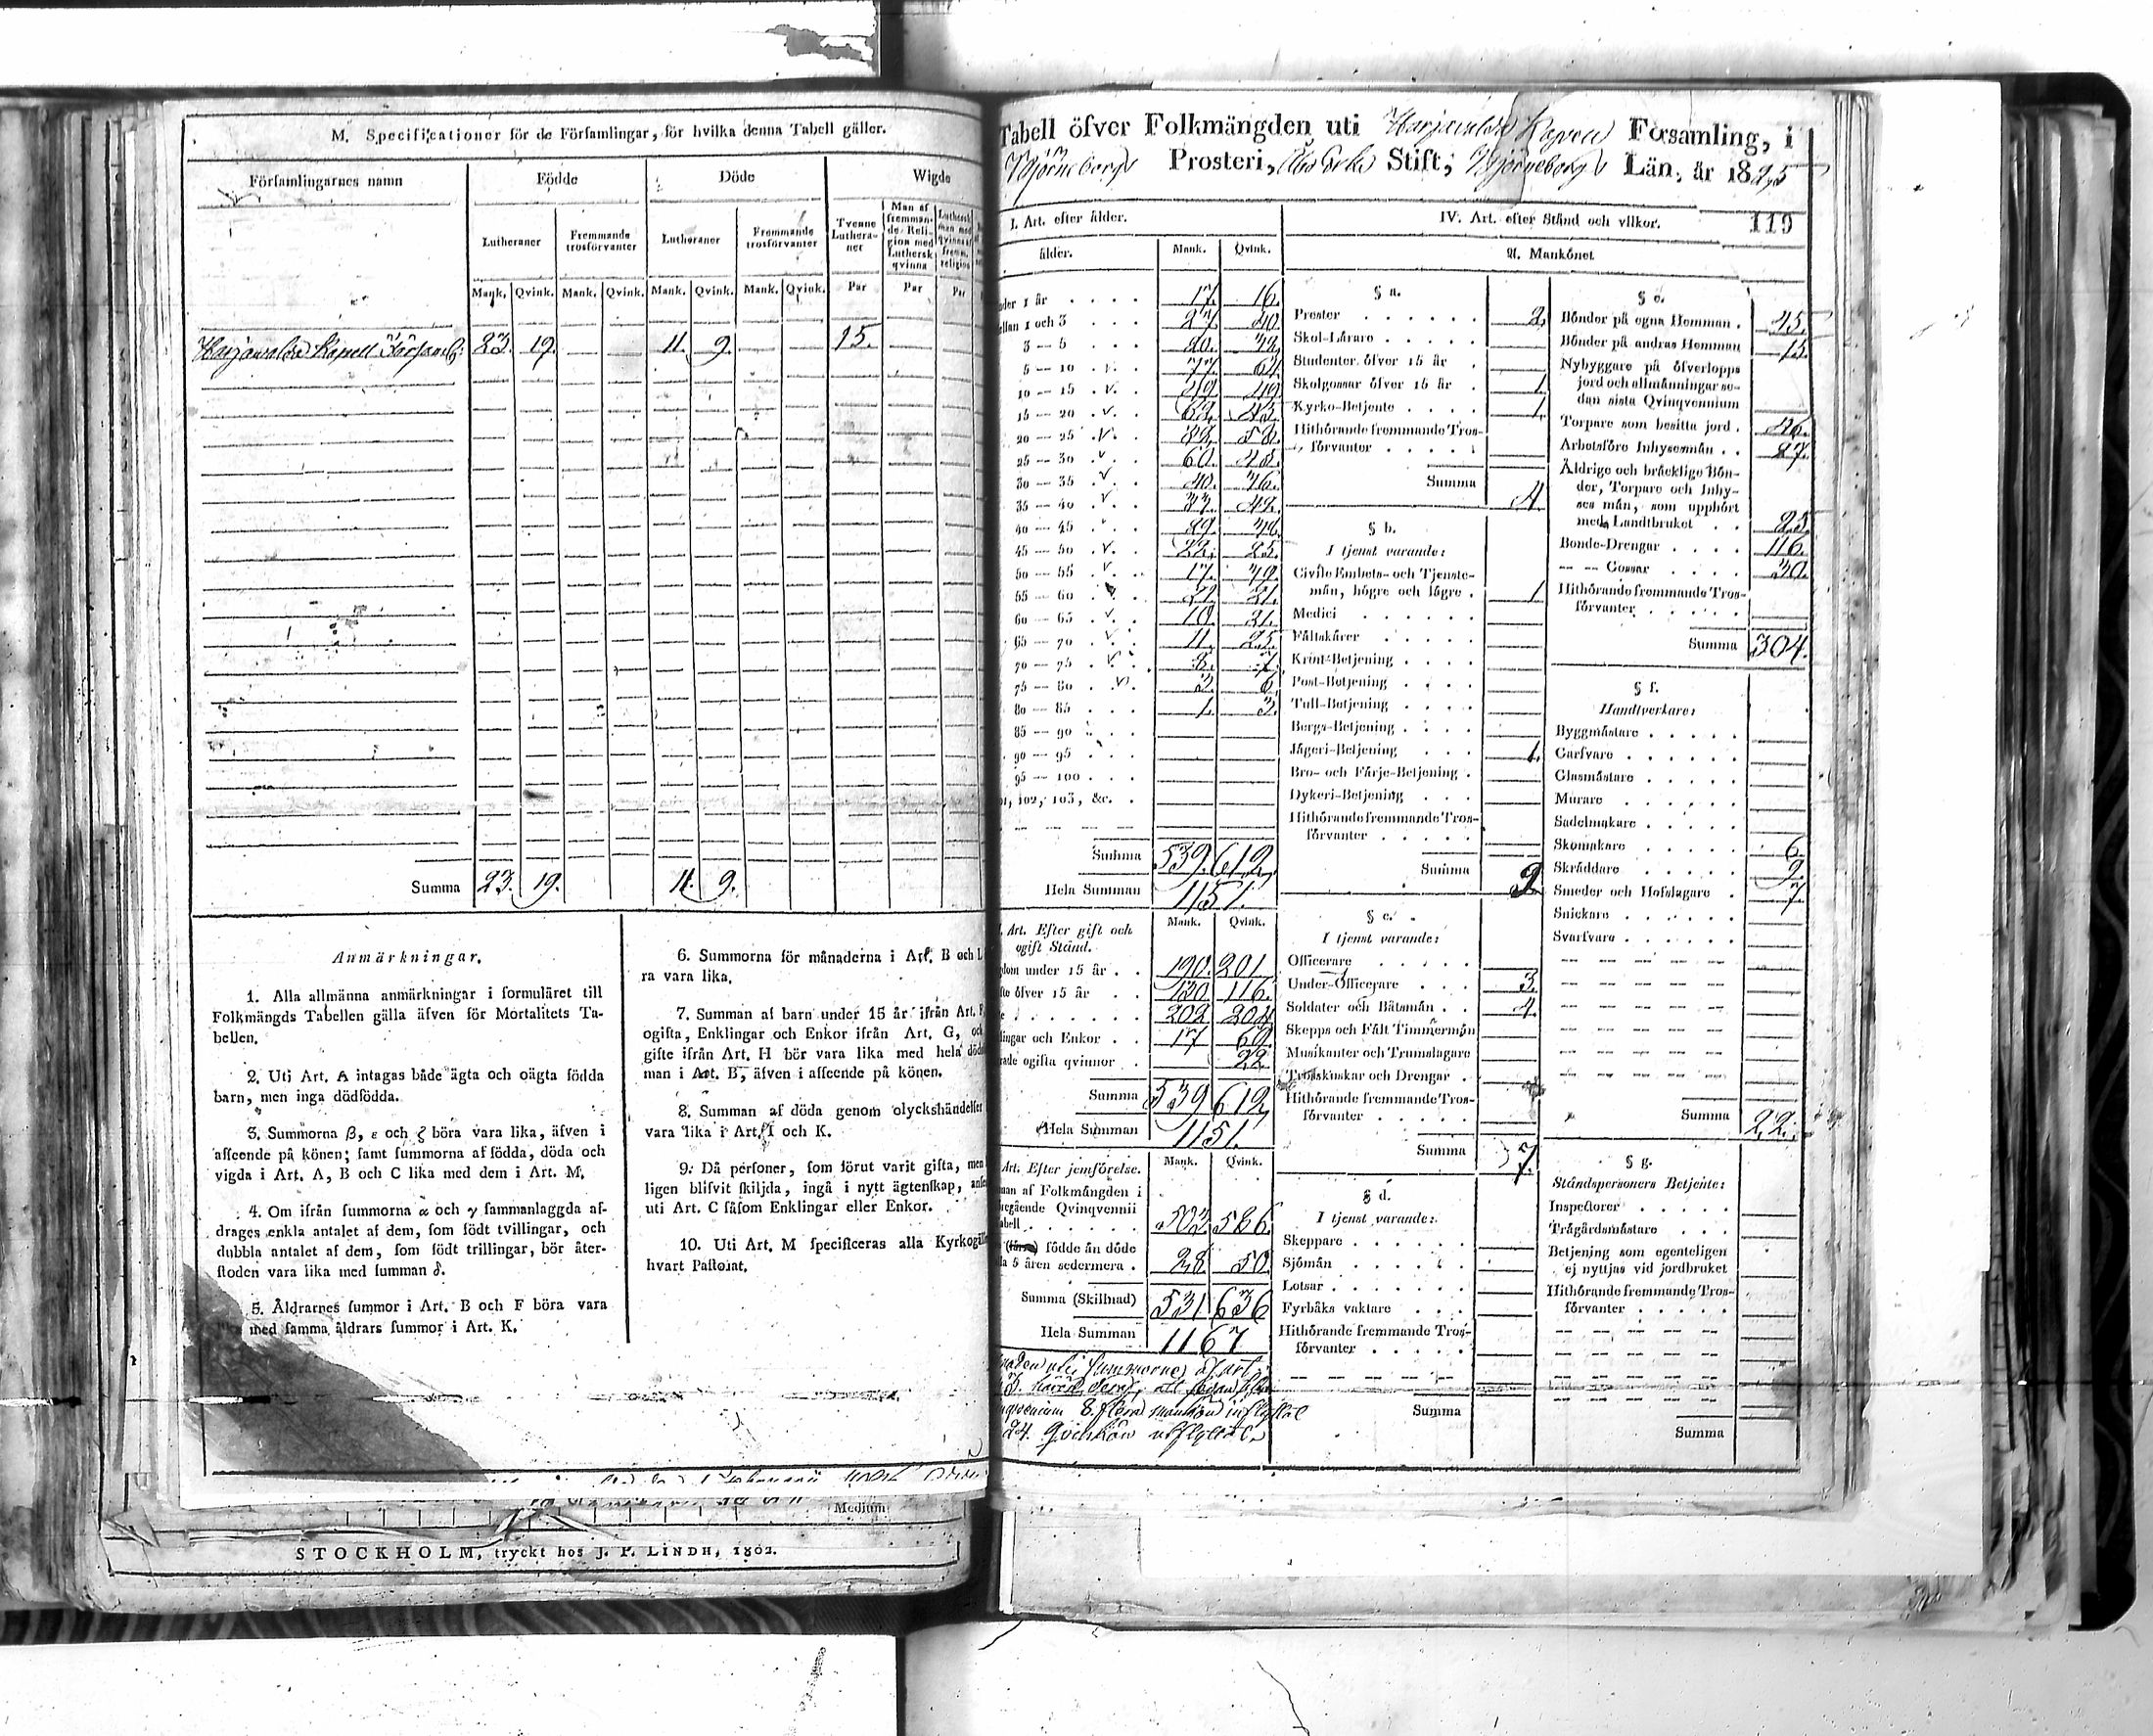 M. Specificationer för de Församlingar, för hvilka denna Tabell gäller.
Församlingarnes namn Födde Döde Wigde
Lutheraner Fremmande trosförvanter Lutheraner Fremmande trosförvanter Tvenne Lutheraner Man af fremmande Religion med Luthersk qvinna Luthersk man med qvinna af fremm. religion
Mank. Qvink. Mank. Qvink. Mank. Qvink. Mank. Qvink. Par Par Par
Harjawalda Kapell Församl. 23. 19. 11. 9. 15.
Summa 23. 19. 11. 9.
Anmärkningar.
1. Alla allmänna anmärkningar i formuläret till
Folkmängds Tabellen gälla äfven för Mortalitets Ta-
bellen.
2. Uti Art. A intagas både ägta och oägta födda
barn, men inga dödfödda.
3. Summorna β, ε och ζ böra vara lika, äfven i
afseende på könen; samt summorna af födda, döda och
vigda i Art. A, B och C lika med dem i Art. M.
4. Om ifrån summorna α och γ sammanlaggda af-
drages enkla antalet af dem, som födt tvillingar, och
dubbla antalet af dem, som födt trillingar, bör åter-
stoden vara lika med summan δ.
5. Åldrarnes summor i Art. B och F böra vara
med samma åldrars summor i Art. K.
6. Summorna för månaderna i Art. B och L
ra vara lika.
7. Summan af barn under 15 år ifrån Art. F,
ogifta, Enklingar och Enkor ifrån Art. G, och
gifte ifrån Art. H bör vara lika med hela
man i Art. B, äfven i afseende på könen.
8. Summan af döda genom olyckshändelser
vara lika i Art. I och K.
9. Då personer, som förut varit gifta, men
ligen blifvit skiljda, ingå i nytt ägtenskap,
uti Art. C såsom Enklingar eller Enkor.
10. Uti Art. M specificeras alla
hvart Pastorat.
Medium
STOCKHOLM, tryckt hos J. P. LINDH, 1802.
Tabell öfver Folkmängden uti Harjawalda Kapell Församling, i
Björneborgs Prosteri, Åbo Erke Stift, Björneborgs Län, år 1825
119
I. Art. efter ålder.
ålder. Mank. Qvink.
1 år 17. 16.
1 och 3 27. 40.
3 — 5
5 — 10 77. 64.
10 — 15 49. 49.
15 — 20 62. 43.
20 — 25 58.
25 — 30 60. 48.
30 — 35 40. 36.
35 — 40 37. 42.
40 — 45
45 — 50 22. 25.
50 — 55 17. 39.
55 — 60 21. 21.
60 — 65 10. 31.
65 — 70 11. 25.
70 — 75 3. 7.
75 — 80 3. 6.
80 — 85 1. 3.
85 — 90
90 — 95
95 — 100
102, 103, &c.
Summa 539. 612.
Hela Summan 1151.
Art. Efter gift och
ogift Stånd. Mank. Qvink.
under 15 år 190. 201.
öfver 15 år 130 116.
202 204
och Enkor 17 69.
ogifta qvinnor 22.
Summa 539 612.
Hela Summan 1151.
Art. Efter jemförelse. Mank. Qvink.
af Folkmängden i
Qvinqvennii
503 586.
födde än döde
5 åren sedermera 28. 50.
Summa (Skillnad) 531 636
Hela Summan 1167
Summorne af art.
8 flera mankön inflyttat
24. Qvinkön utflyttat
IV. Art. efter Stånd och vilkor.
A. Mankönet
§ a.
Prester 2.
Skol-Lärare
Studenter öfver 15 år
Skolgossar öfver 15 år 1.
Kyrko-Betjente 1.
Hithörande fremmande Tros-
förvanter
Summa 4.
§ b.
I tjenst varande:
Civile Embets- och Tjenste-
män, högre och lägre 1
Medici
Fältskärer
Kron-Betjening
Post-Betjening
Tull-Betjening
Bergs-Betjening
Jägeri-Betjening 1.
Bro- och Färje-Betjening
Dykeri-Betjening
Hithörande fremmande Tros-
förvanter
Summa 2.
§ c.
I tjenst varande:
Officerare
Under-Officerare 3.
Soldater och Båtsmän 4.
Skepps och Fält Timmermän
Musikanter och Trumslagare
Trosskuskar och Drengar
Hithörande fremmande Tros-
förvanter
Summa 7.
§ d.
I tjenst varande:
Skeppare
Sjömän
Lotsar
Fyrbåks vaktare
Hithörande fremmande Tros-
förvanter
Summa
§ e.
Bönder på egna Hemman 45.
Bönder på andras Hemman 15.
Nybyggare på öfverlopps
jord och allmänningar se-
dan sista Qvinqvennium
Torpare som besitta jord
Arbetsföre Inhysesmän
Åldrige och bräcklige Bön-
der, Torpare och Inhy-
ses män, som upphört
med Landtbruket 25.
Bonde-Drengar 116.
— — Gossar 30.
Hithörande fremmande Tros-
förvanter
Summa 304.
§ f.
Handtverkare:
Byggmästare
Garfvare
Glasmästare
Murare
Sadelmakare
Skomakare 6.
Skräddare 9.
Smeder och Hofslagare 7.
Snickare
Svarfvare
Summa 22.
§ g.
Ståndspersoners Betjente:
Inspektorer
Trägårdsmästare
Betjening som egenteligen
ej nyttjas vid jordbruket
Hithörande fremmande Tros-
förvanter
Summa